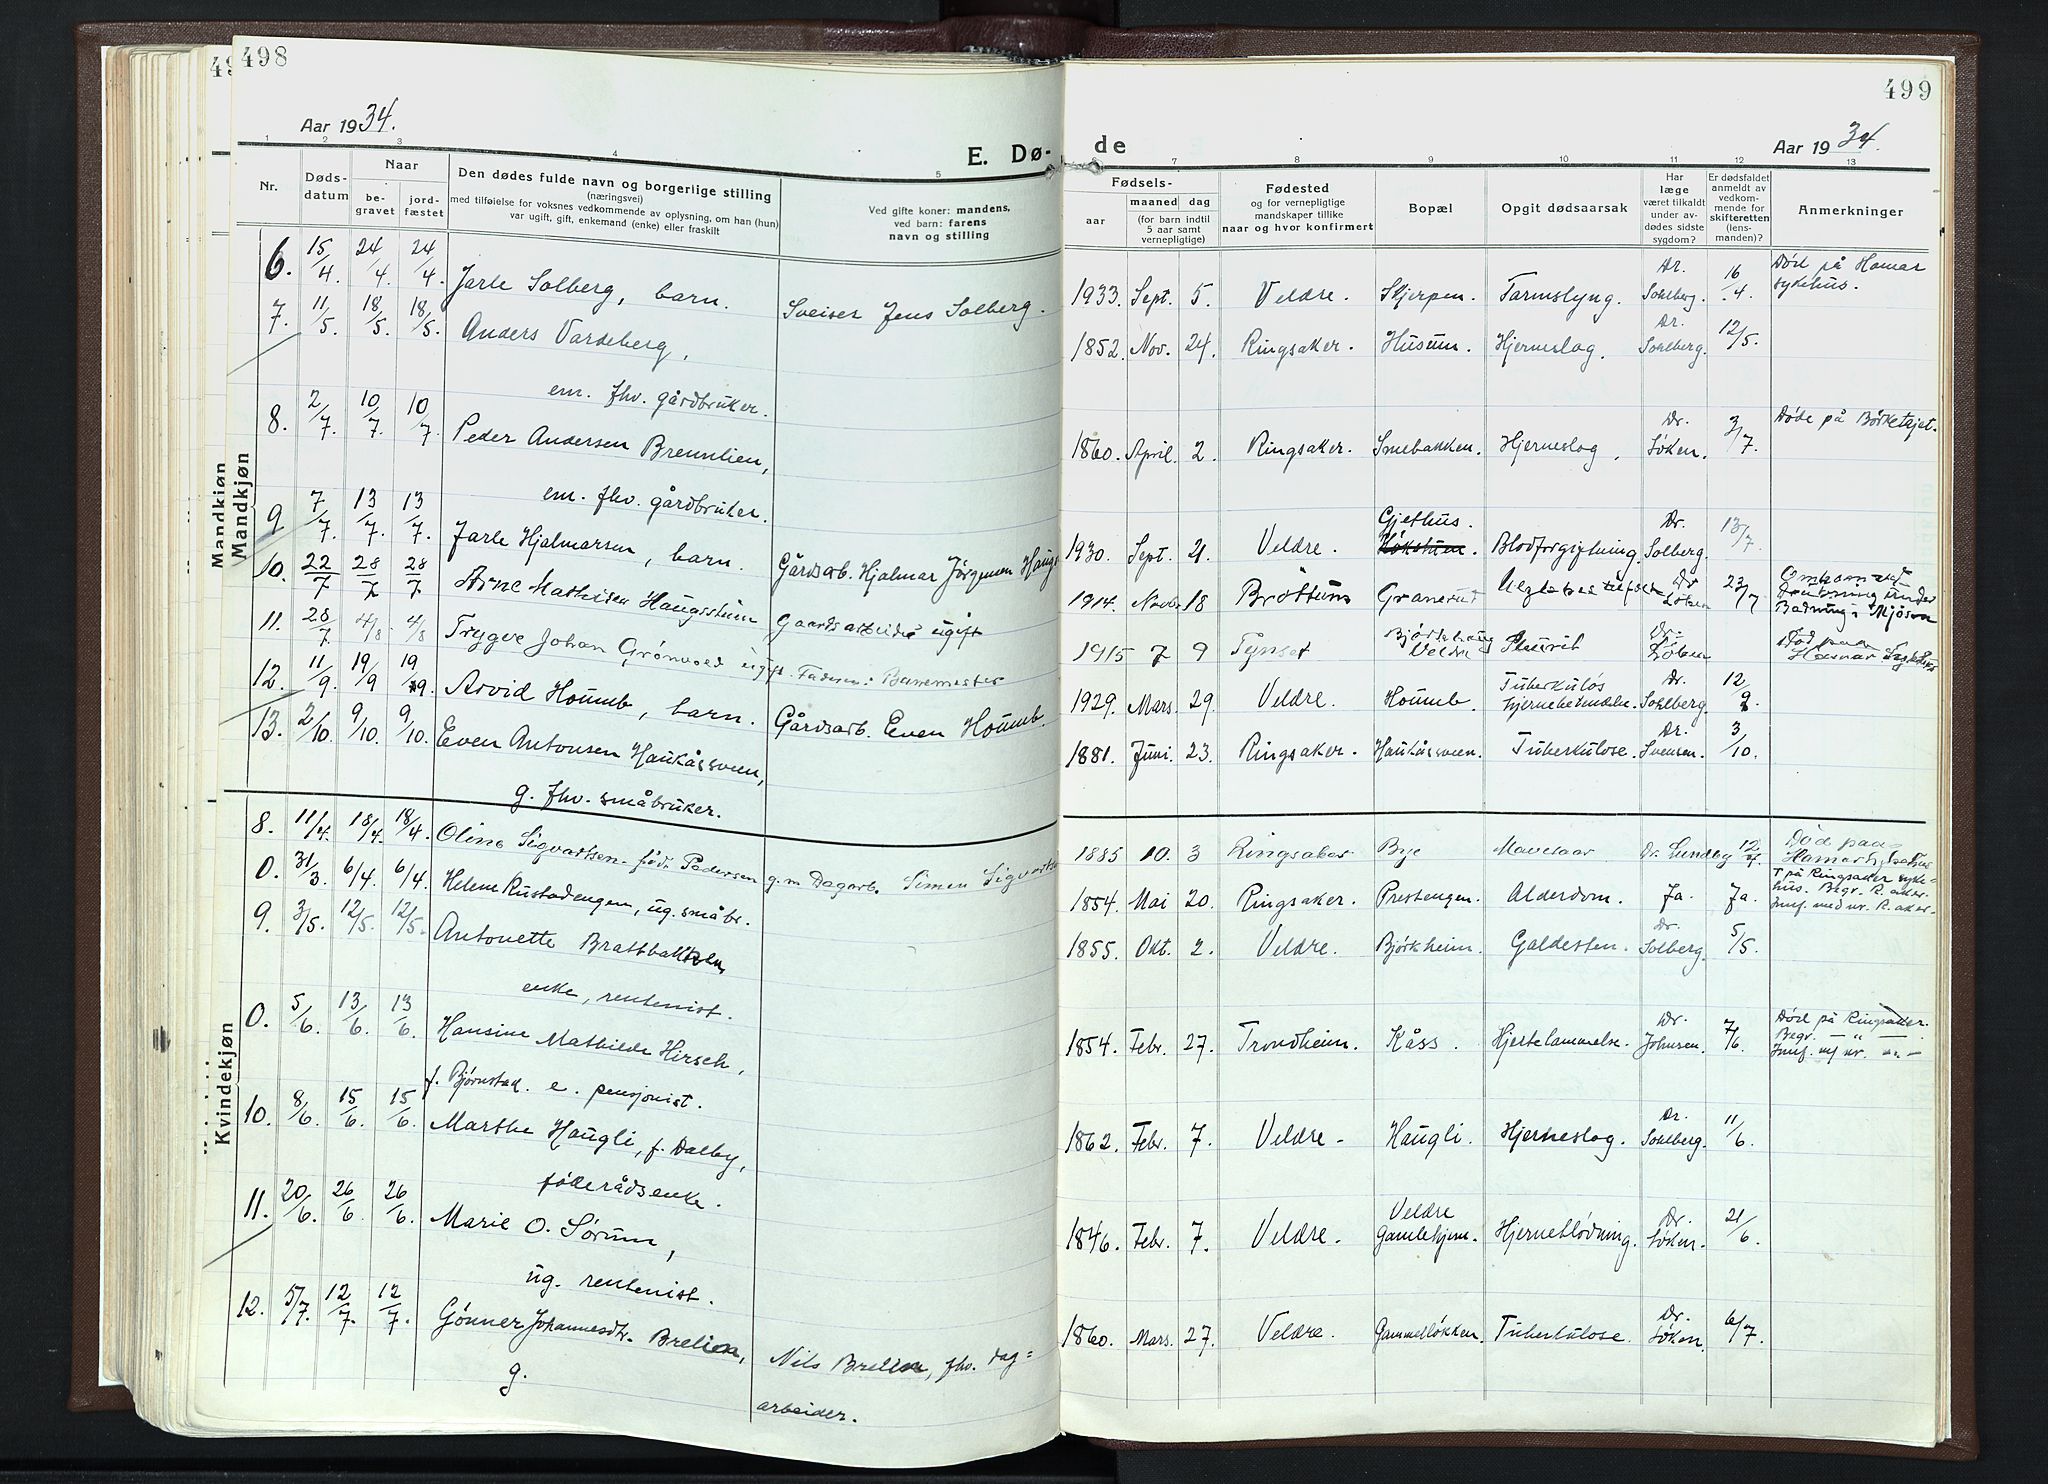 498
499
Aar 1934.
E. Dø-
de
Aar 1934.
1 2 3 4 5 7 8 9 10 11 12 13
Nr.
Døds-
datum
Naar
be-
gravet
jord-
fæstet
Den dødes fulde navn og borgerlige stilling
(næringsvei)
med tilføielse for voksnes vedkommende av oplysning, om han (hun)
var ugift, gift, enkemand (enke) eller fraskilt
Ved gifte koner: mandens,
ved barn: farens
navn og stilling
Fødsels-
aar
maaned dag
(for barn indtil
5 aar samt
vernepligtige)
Fødested
og for vernepligtige
mandskaper tillike
naar og hvor konfirmert
Bopæl
Opgit dødsaarsak
Har
læge
været tilkaldt
under av-
dødes sidste
sygdom?
Er dødsfaldet
anmeldt av
vedkom-
mende for
skifteretten
(lens-
manden)?
Anmerkninger
Mandkjøn
Mandkjøn
6. 15/4. 24/4 24/4. Jarle Solberg, barn. Sveiser Jens Solberg. 1933. Sept. 5. Veldre. Skjerpen. Tarmslyng. Dr. Sohlberg. 16/4. Død på Hamar
sykehus.
7. 11/5. 18/5. 18/5. Anders Vardeberg, 1852. Nov. 24. Ringsaker. Husum. Hjerneslag. Dr. Sohlberg. 12/5.
em. fhv. gårdbruker.
8. 2/7. 10/7. 10/7 Peder Andersen Brennlien, 1860. April. 2. Ringsaker. Smebakken. Hjerneslag. Dr. Løken. 3/7. Døde på Børketajet.
em. fhv. gårdbruker.
9 7/7. 13/7. 13/7. Jarle Hjalmarsen, barn. Gårdsarb. Hjalmar Jørgensen Haugs 1930. Sept. 21. Veldre. Gjethus. Blodforgiftning. Dr. Solberg. 13/7.
10. 22/7 28/7 28/7 Arne Mathisen Haugsstuen Gaardsarbeider ugift 1914. Novbr 18 Brøttum Granerud Dr Løken 23/7 Omkom ved
Drukning under
Badning i Mjøsen
11. 28/7. 4/8. 4/8 Trygve Johan Grønvold ugift. Faderen: Banemester 1915 7 9 Tynset Bjørkehaug
Veldre Pleurit Dr. Løken Død paa
Hamar Sygehus
12. 11/9. 19/9 19/9. Arvid Houmb, barn. Gårdsarb. Even Houmb. 1929. Mars. 29. Veldre. Houmb. Tuberkuløs
hjernebetendelse. Dr. Sohlberg. 12/9.
13. 2/10. 9/10. 9/10. Even Antonsen Haukåssveen, 1881. Juni. 23. Ringsaker. Haukåssveen. Tuberkulose. Dr. Svensen. 3/10.
g. fhv. småbruker.
Kvindekjøn
8. 11/4. 18/4 18/4. Oline Sigvartsen. født Pedersen g.m Dagarb. Simen Sigvartsen 1885 10. 3 Ringsaker Bye Mavesaar Dr. Lundby 12/4. Død paa
Hamar Sykehus
0. 31/3. 6/4. 6/4. Helene Rustadengen, ug. småbr. 1854. Mai 20. Ringsaker. Prestengen. Alderdom. Ja. Ja. † på Ringsaker syke-
hus. Begr. R. aker.
Innf. med nr. R. aker.
9. 3/5. 12/5. 12/5. Antonette Brattbakken, 1855. Okt. 2. Veldre. Bjørkheim. Galdesten. Dr. Solberg. 5/5.
enke, rentenist.
0. 5/6. 13/6. 13/6. Hansine Mathilde Hirsch, 1854. Febr. 27. Trondheim. Kåss. Hjertelammelse. Dr. Johnsen. 7/6. Død på Ringsaker.
Begr. — „ —
Innf. m/ nr. — „ —
f. Bjørnstad. e. pensjonist.
10. 8/6. 15/6. 15/6. Marthe Haugli, f. Dalby, 1862. Febr. 7. Veldre. Haugli. Hjerneslag. Dr. Sohlberg. 11/6.
føderådsenke.
11. 20/6. 26/6. 26/6. Marie O. Sørum, 1846. Febr. 7. Veldre. Veldre
Gamlehjem. Hjerneblødning. Dr. Løken. 21/6.
ug. rentenist.
12. 5/7. 12/7. 12/7. Gønner Johannesdtr. Brelien, 1860. Mars. 27. Veldre. Gammelløkken. Tuberkulose. Dr. Løken. 6/7.
g. Nils Brelien, fhv. dag=
arbeider.